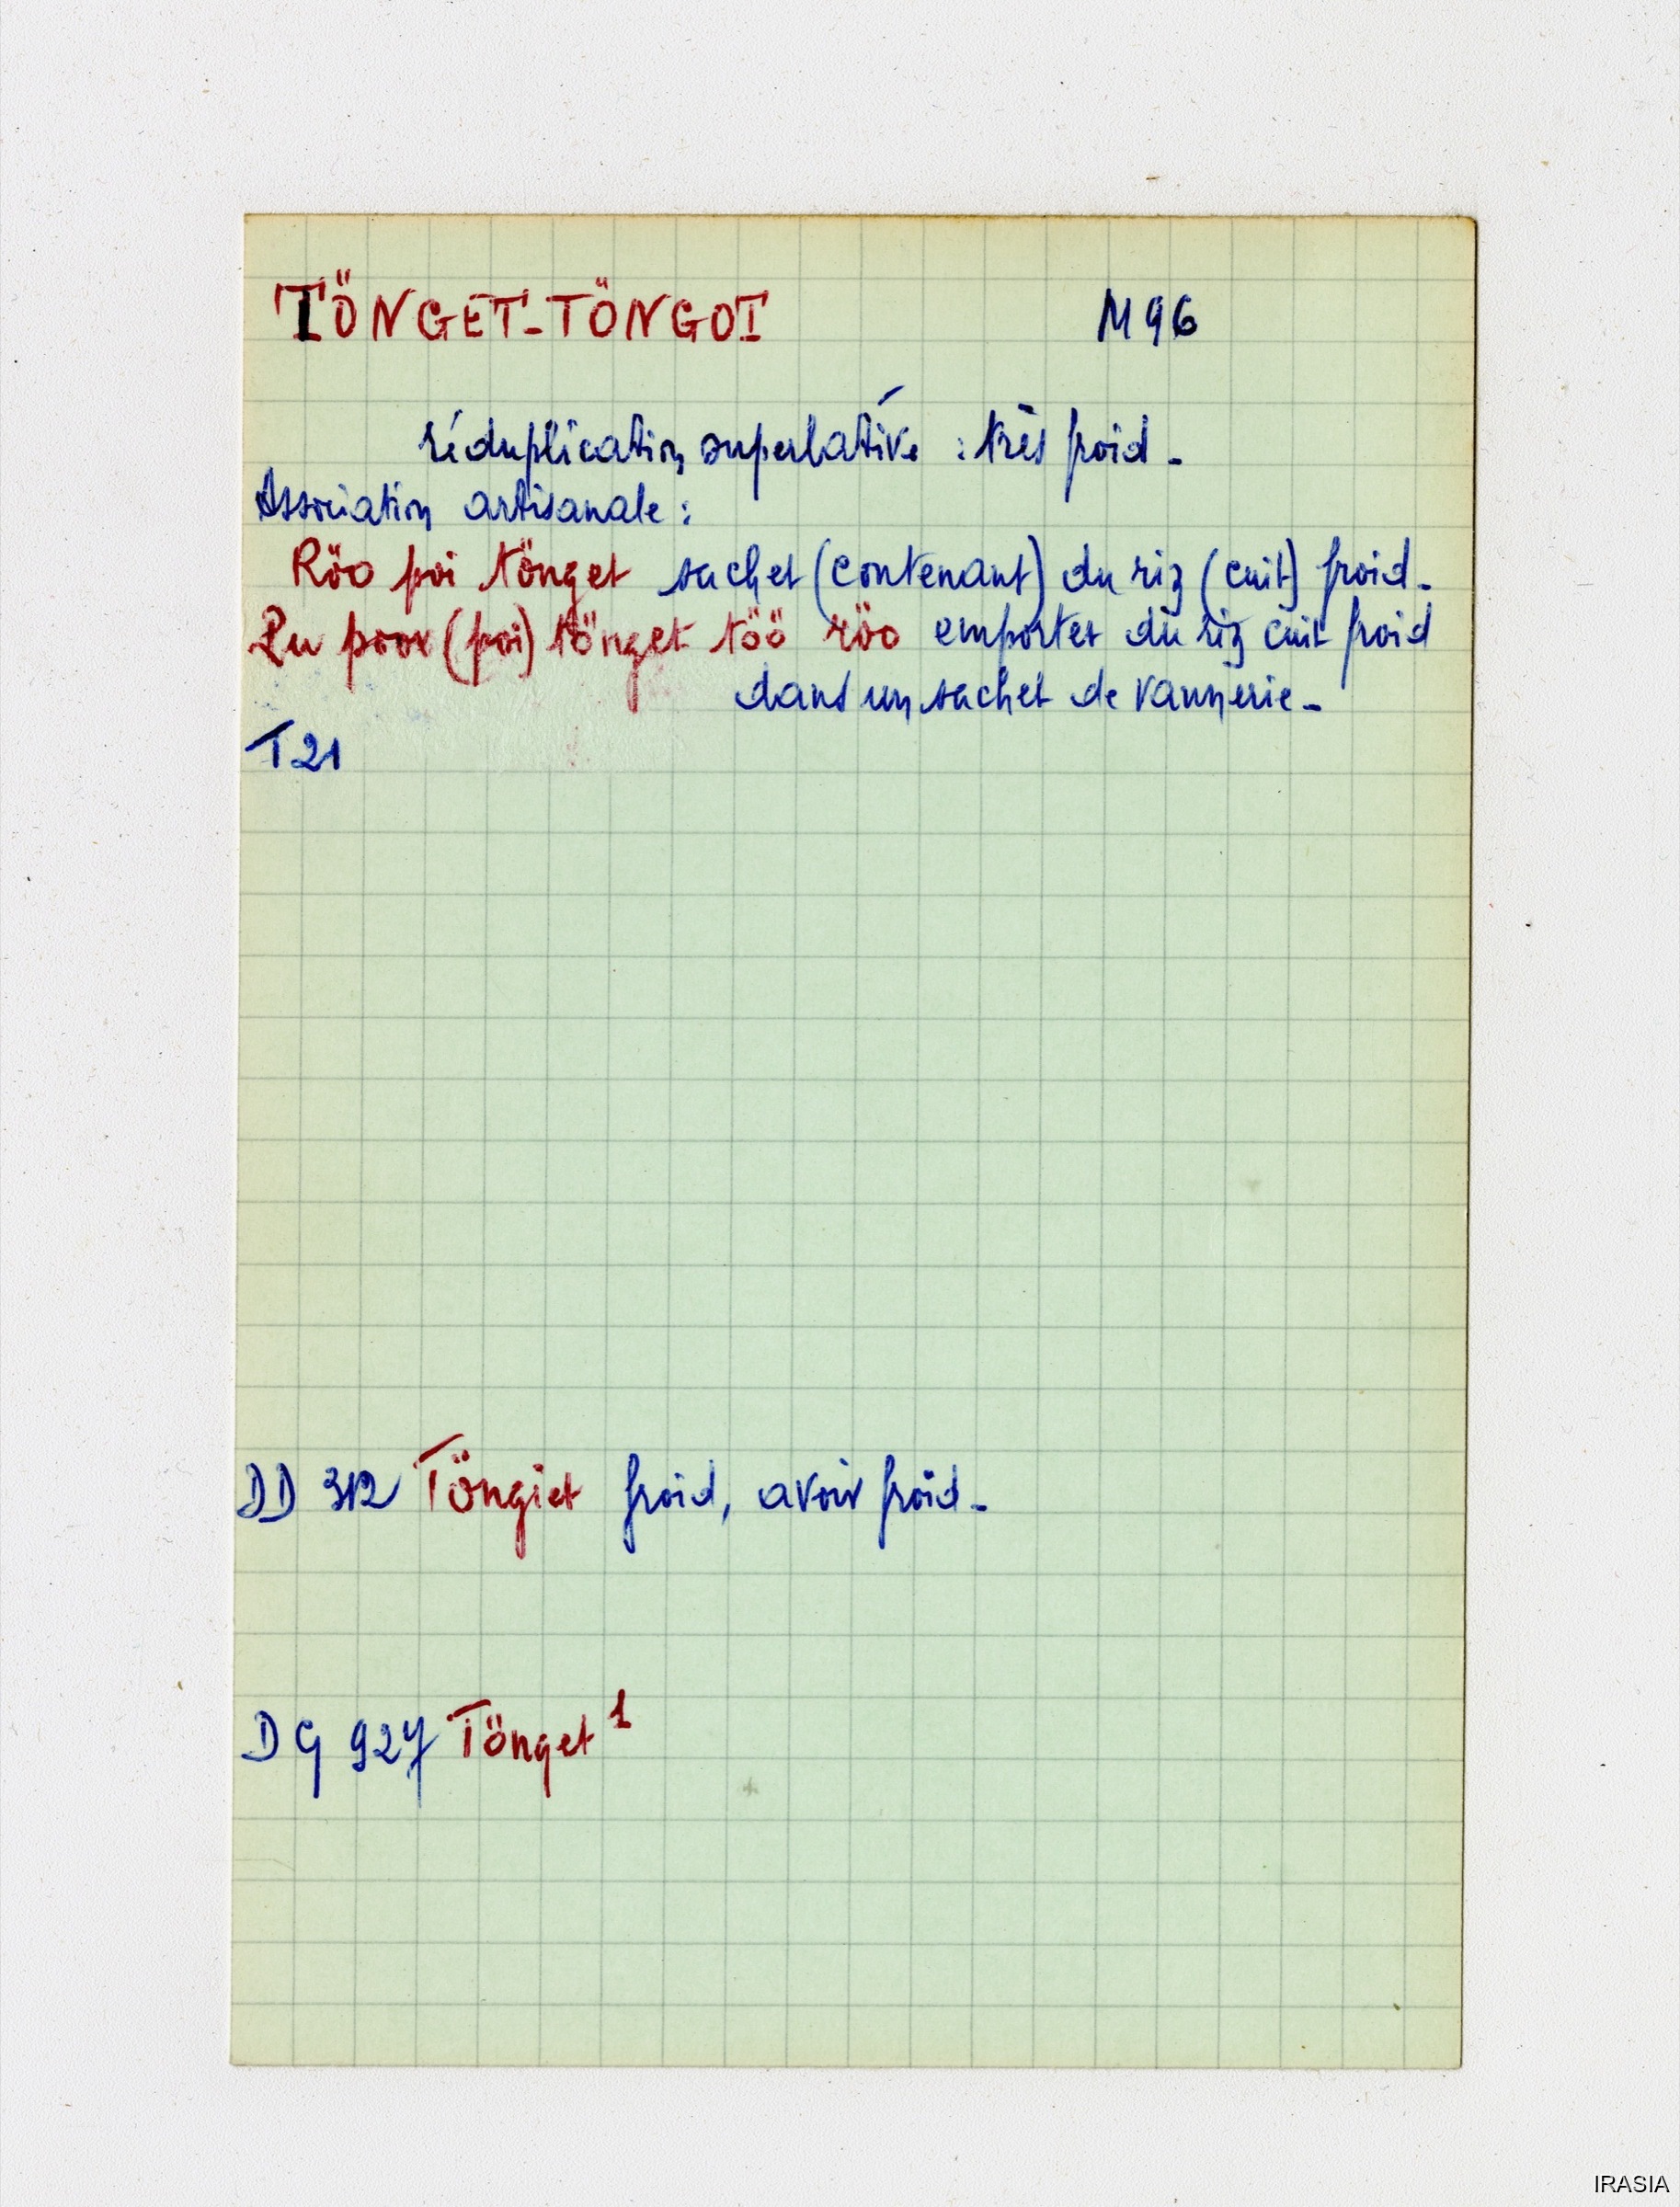 TÖNGET-TÖNGOT M96
réduplication superlative : très froid.
Association artisanale :
Röo poi tönget sachet (contenant) du riz (cuit) froid.
(poi) tönget töö röo emporter du riz cuit froid
dans un sachet de vannerie.
T21
DD 312 Töngiet froid, avoir froid.
DG 927 Tönget 1
IRASIA